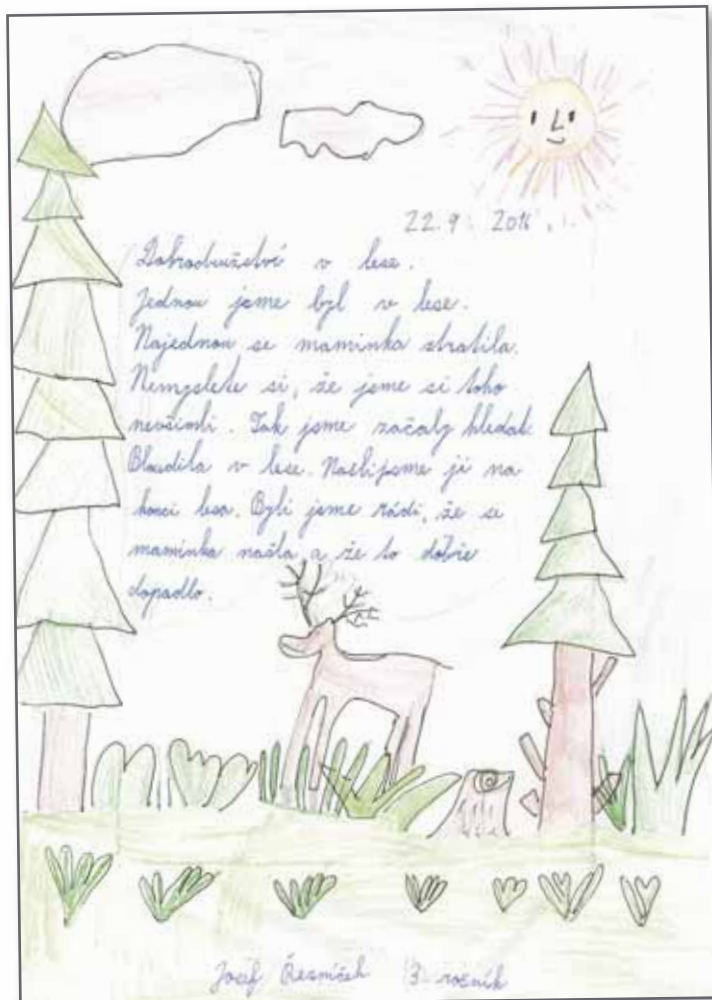 22.9. 2016.
Dobrodružství v lese.
Jednou jsme byl v lese.
Najednou se maminka ztratila.
Nemyslete si, že jsme si toho
nevšimli. Tak jsme začaly hledat.
Bloudila v lese. Našlijsme ji na
konci lesa. Byli jsme rádi, že se
maminka našla a že to dobře
dopadlo.
Josef Řezníček 3. ročník